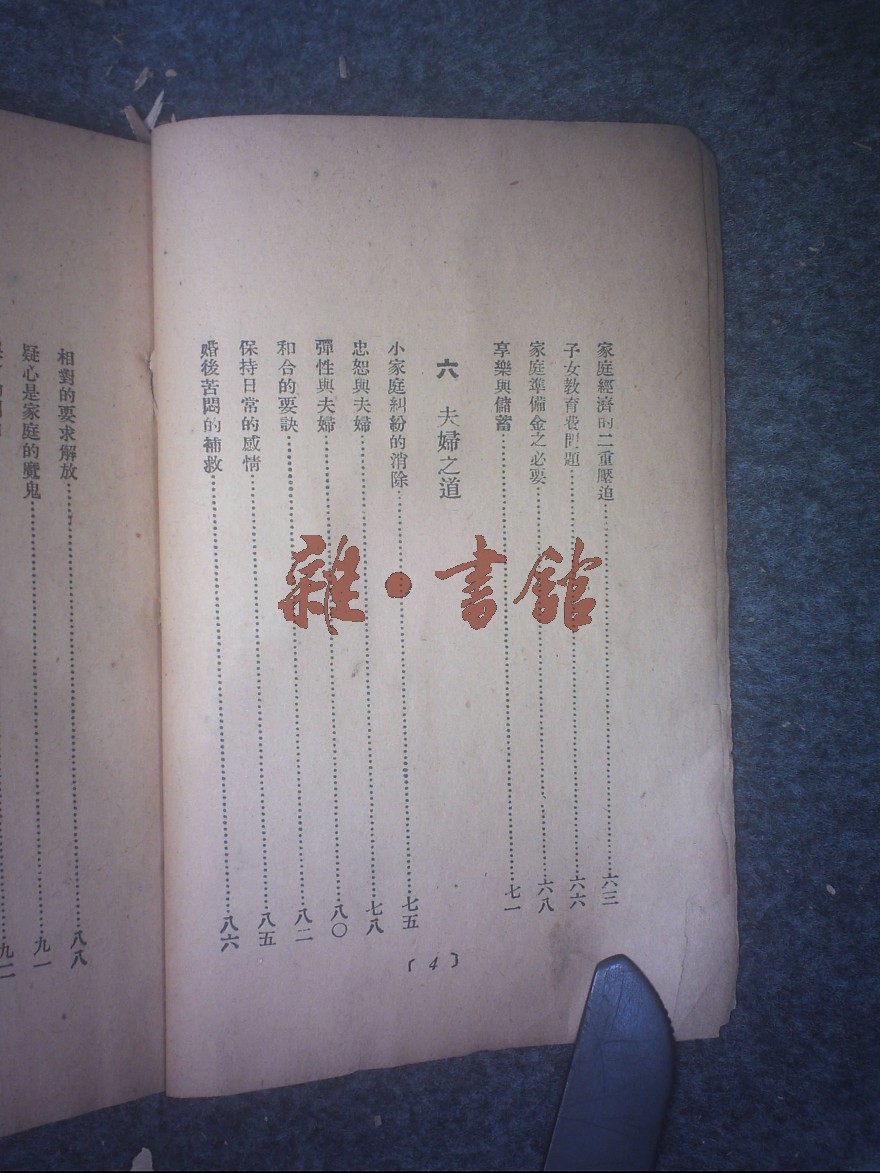 家庭經濟的二重壓迫……六三
子女教育費問題……六六
家庭準備金之必要……六八
享樂與儲蓄……七一
六 夫婦之道
小家庭糾紛的消除……七五
忠恕與夫婦……七八
彈性與夫婦……八〇
和合的要訣……八二
保持日常的感情……八五
婚後苦悶的補救……八六
〔4〕
相對的要求解放……八八
疑心是家庭的魔鬼……九一
九二
雜·書館